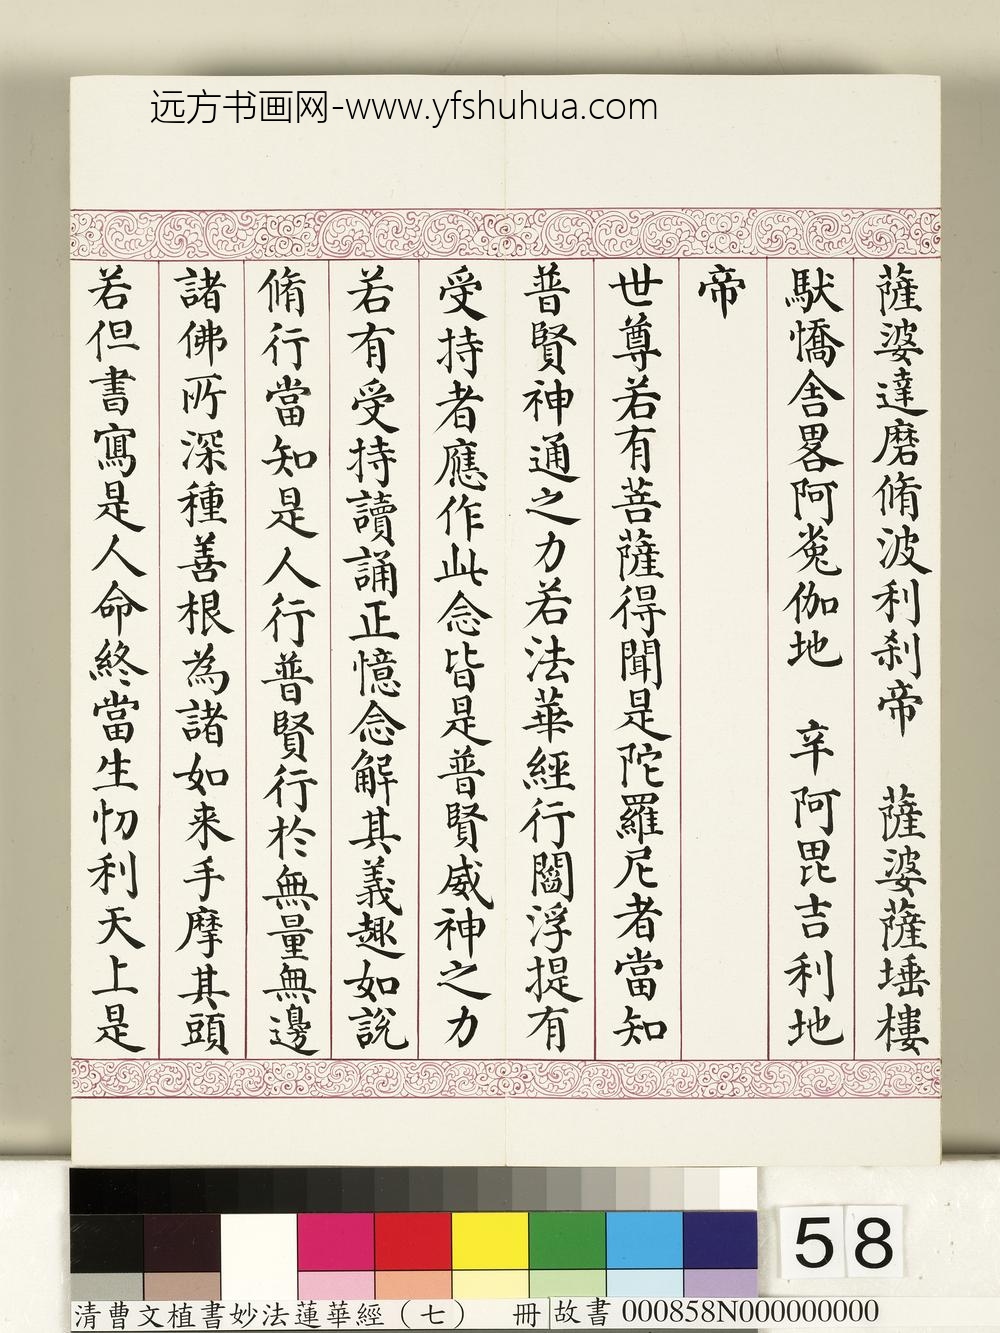 远方书画网-www.yfshuhua.com
薩婆達磨脩波利刹帝　薩婆薩埵樓
馱憍舍畧阿㝹伽地　辛阿毘吉利地
帝
世尊若有菩薩得聞是陀羅尼者當知
普賢神通之力若法華經行閻浮提有
受持者應作此念皆是普賢威神之力
若有受持讀誦正憶念解其義趣如說
脩行當知是人行普賢行於無量無邊
諸佛所深種善根為諸如来手摩其頭
若但書寫是人命終當生忉利天上是
58
清曹文植書妙法蓮華經（七）　冊 故書 000858N000000000